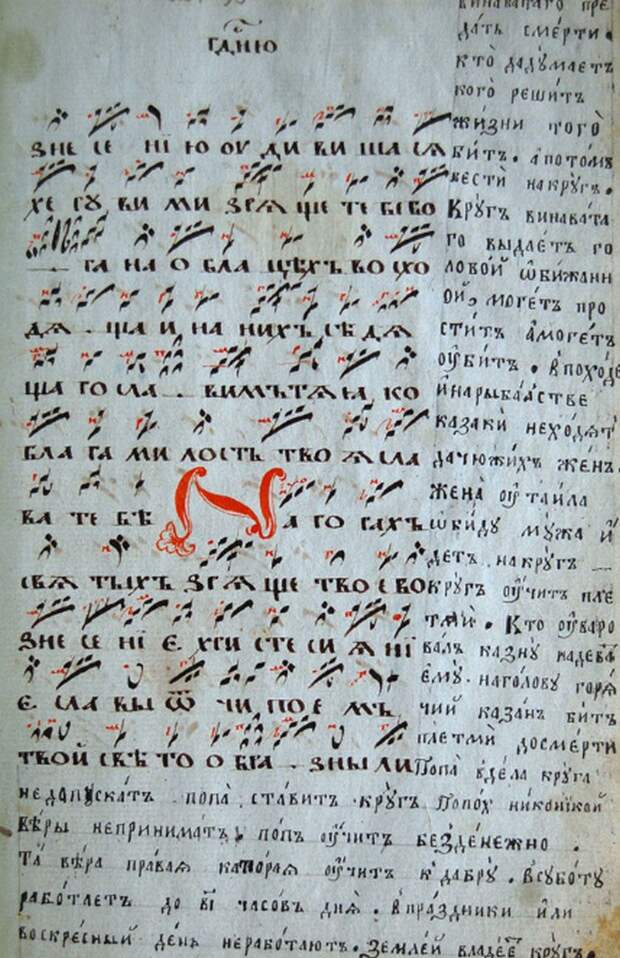 ГДНЮ
ЗНЕ СЕ НЇ Ю ОУ ДИ ВИ ША СѦ
ХЕ РУ ВИ МИ ЗРѦ ЩЕ ТЕ БЕ БО
ГА НА О БЛА ЦѢХЪ ВО СХО
ДѦ ЩА И НА НИХЪ СѢ ДѦ
ЩА ГО СЛА ВИМЪ ТѦ ꙖКО
БЛА ГА МИ ЛОСТЬ ТВО Ѧ СЛА
ВА ТЕ БѢ НА ГО РАХЪ
СВѦ ТЫХЪ ЗРѦ ЩЕ ТВО Е ВО
ЗНЕ СЕ НЇ Е ХРИ СТЕ СИ Ѧ НЇ
Е СЛА ВЫ Ѿ ЧИ ПО Е МЪ
ТВОЙ СВѢ ТО О БРА ЗНЫ ЛИ
винаватаго пре
да́ть сме́рти.
кто̀ даду́маетъ
кого̀ реши́тъ
жи́зни того̀
би́тъ. а пото́мъ
вести́ на кру́гъ.
Кру́гъ винава́та
го выдае́тъ го
лово́й ѡ҆би́жанн
ой, мо́жетъ про
сти́тъ а мо́жетъ
оу҆би́тъ. в похо́де
и на рыба́лстве
казаки̑ не хо́дѧтъ
да чюжи́хъ же́нъ.
Жена̀ оу҆таи́ла
ѡ҆би́ду му́жа и҆
де́тъ на кру́гъ
кру́гъ оу҆́читъ пле
тми́. Кто̀ оу҆воро
ва́лъ казну̀ надева́
ему̀ на голову горѧ́
чий каза́нъ би́тъ
плетми̑ до сме́рти
Попа̀ в дела̀ кру́га
не допуска́тъ попа̀ ста́витъ кру́гъ Попо́х нико́нской
ве́ры не принима́тъ, по́пъ оу҆́читъ безде́нежно.
Та̀ ве́ра пра́вая кото́рая оу҆́читъ к добру̀. в субо́ту
рабо́таетъ до в҃і часо́въ днѧ̀. в пра́здники и҆ли
воскре́сный де́нь не рабо́таютъ. Земле́й владе́етъ кру́гъ.